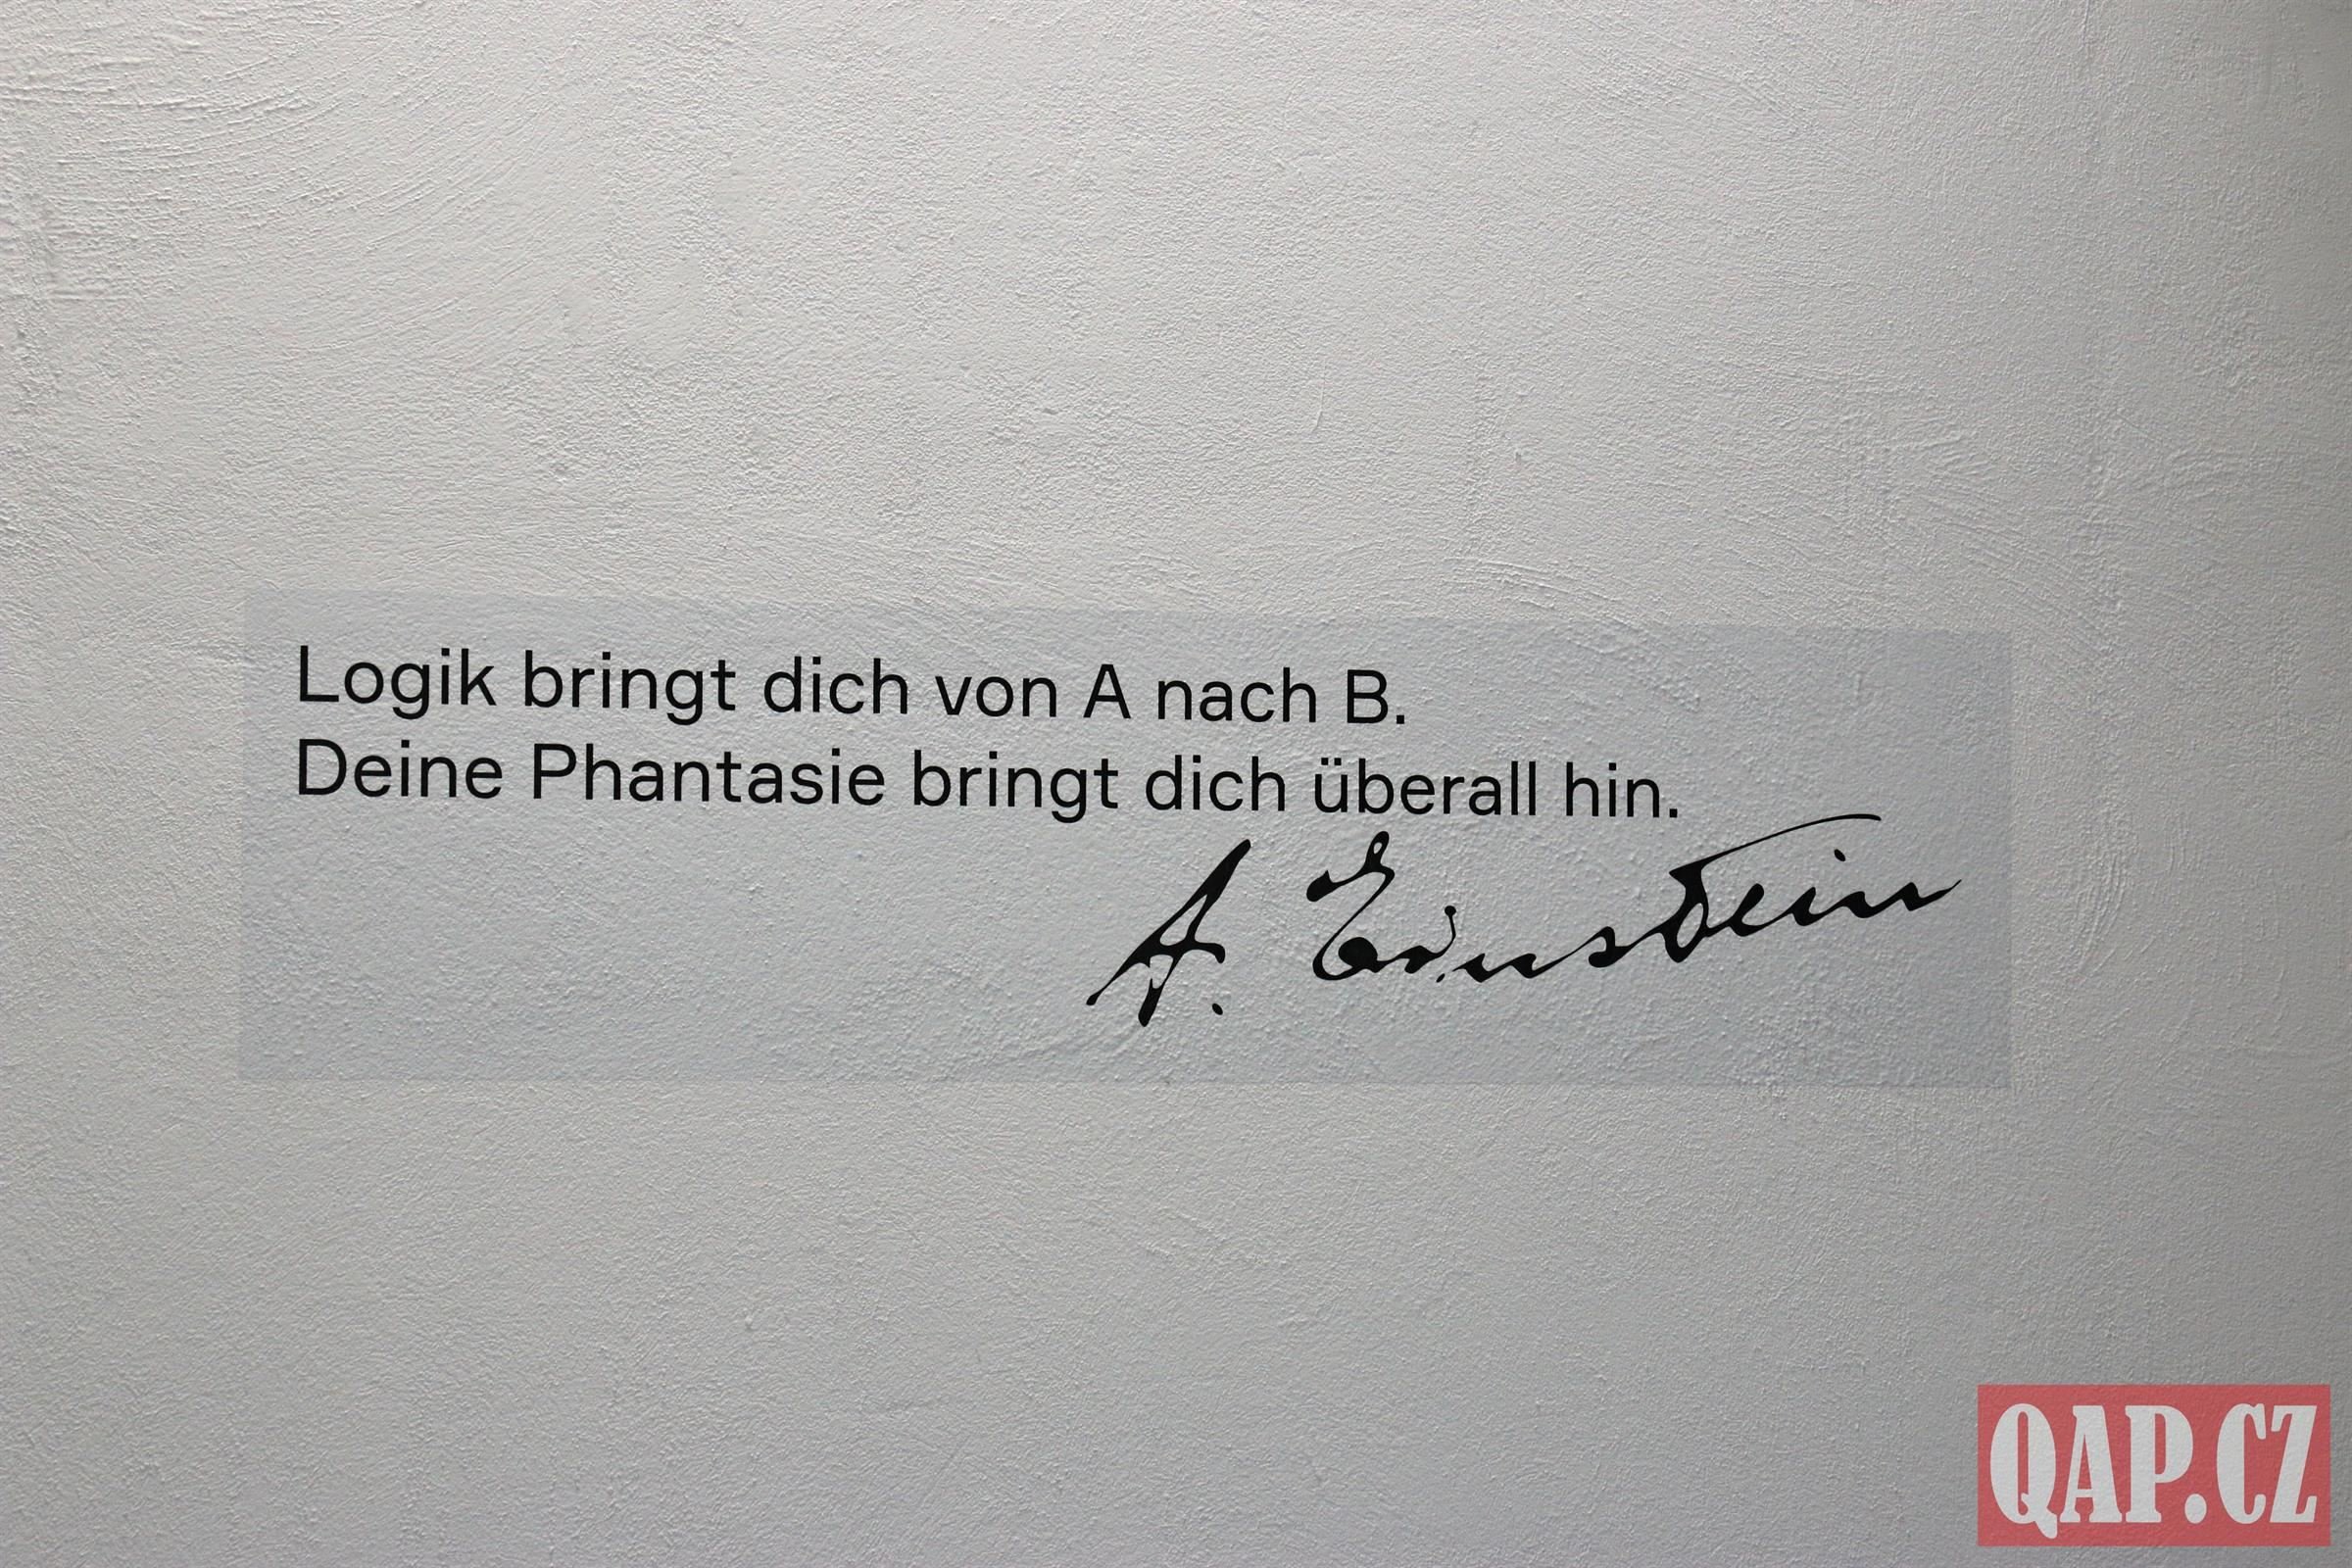 Logik bringt dich von A nach B.
Deine Phantasie bringt dich überall hin.
A. Einstein
QAP.CZ